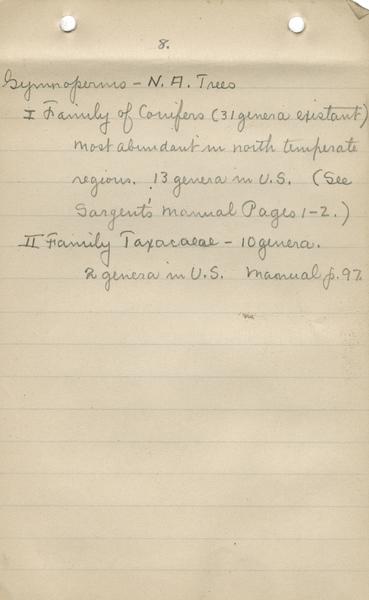 8.
Gymnosperms - N.A. Trees
I Family of Conifers (31 genera existant)
most abundant in north temperate
regions. 13 genera in U.S. (See
Sargent's Manual Pages 1-2.)
II Family Taxaceae - 10 genera.
2 genera in U.S. Manual p. 97